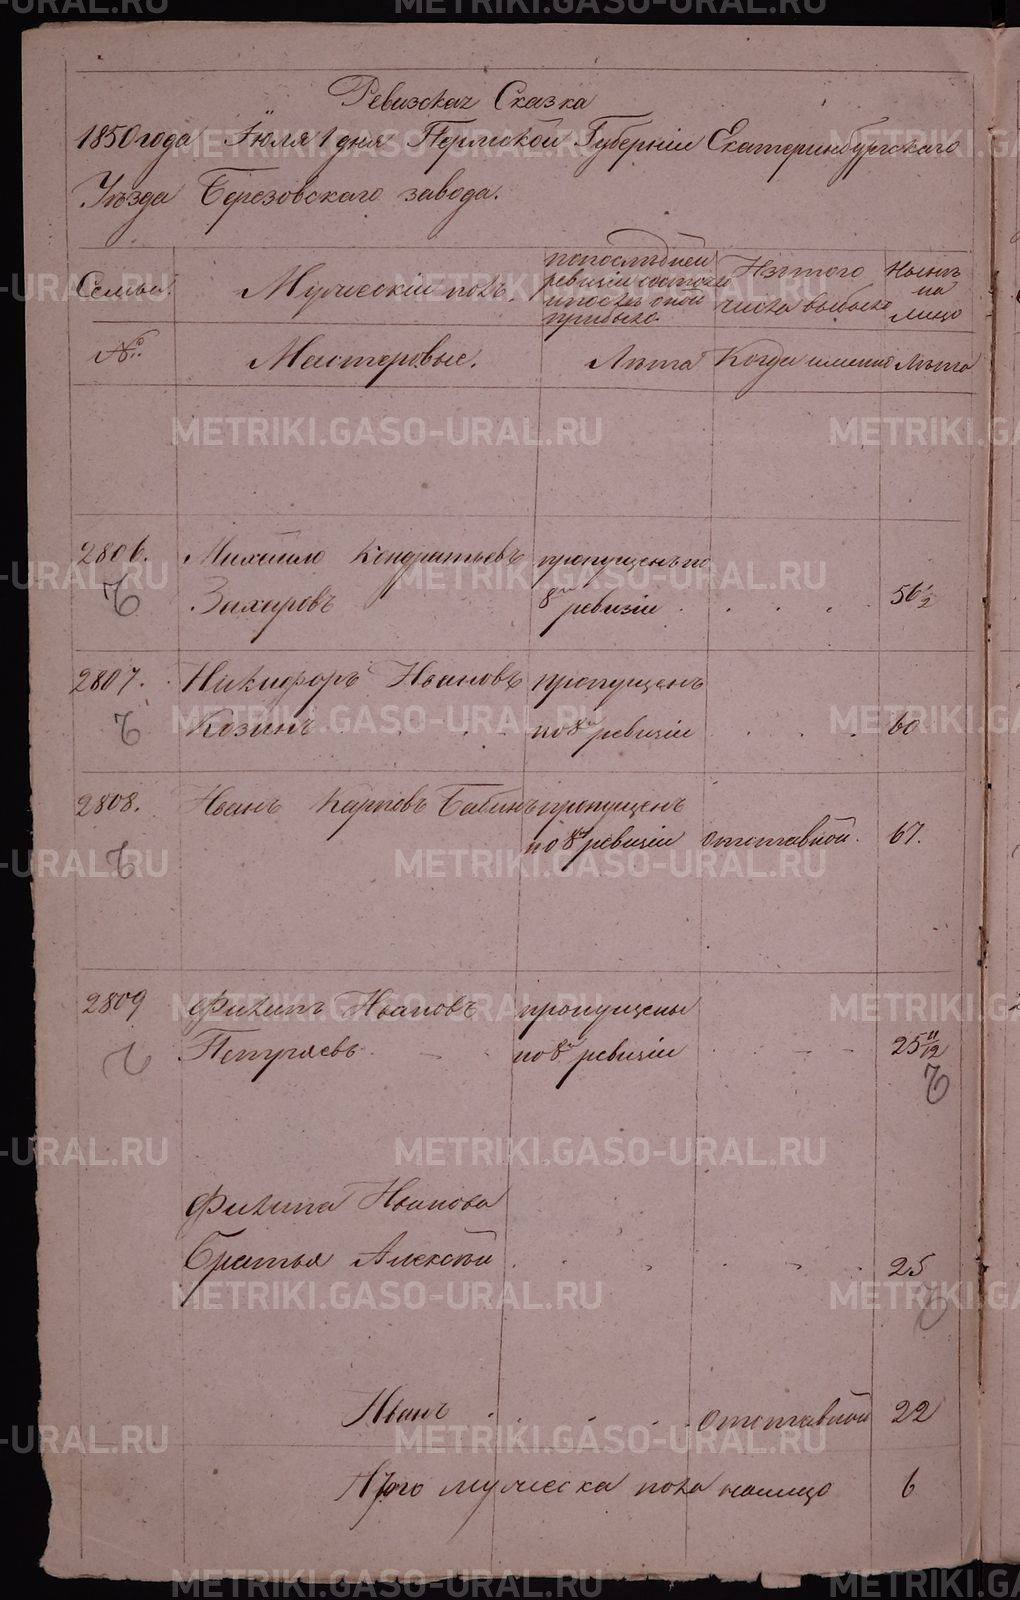 Ревизская Сказка
1850 года Іюля 1 дня Пермской Губерніи Екатеринбургскаго
Уѣзда Березовскаго завода.
Семьи. Мужескій полъ. по последней ревизіи состояло и послѣ оной прибыло. Изъ того числа выбыло Нынѣ на лицо
№ Мастеровые. Лѣта Когда именно Лѣта
2806. Михайло Кондратьевъ пропущенъ по
Захаровъ 8й ревизіи . . . . 56 1/2
2807. Никифоръ Ивановъ пропущенъ
Козинъ по 8й ревизіи . . . . 60
2808. Иванъ Карповъ Бабинъ пропущенъ
по 8й ревизіи отставной. 67.
2809 Филипъ Ивановъ пропущены
по 8й ревизіи 25 11/12
Филипа Иванова
Братья Алексѣй 25
Иванъ отставной 22
Итого мужеска пола налицо 6
METRIKI.GASO-URAL.RU